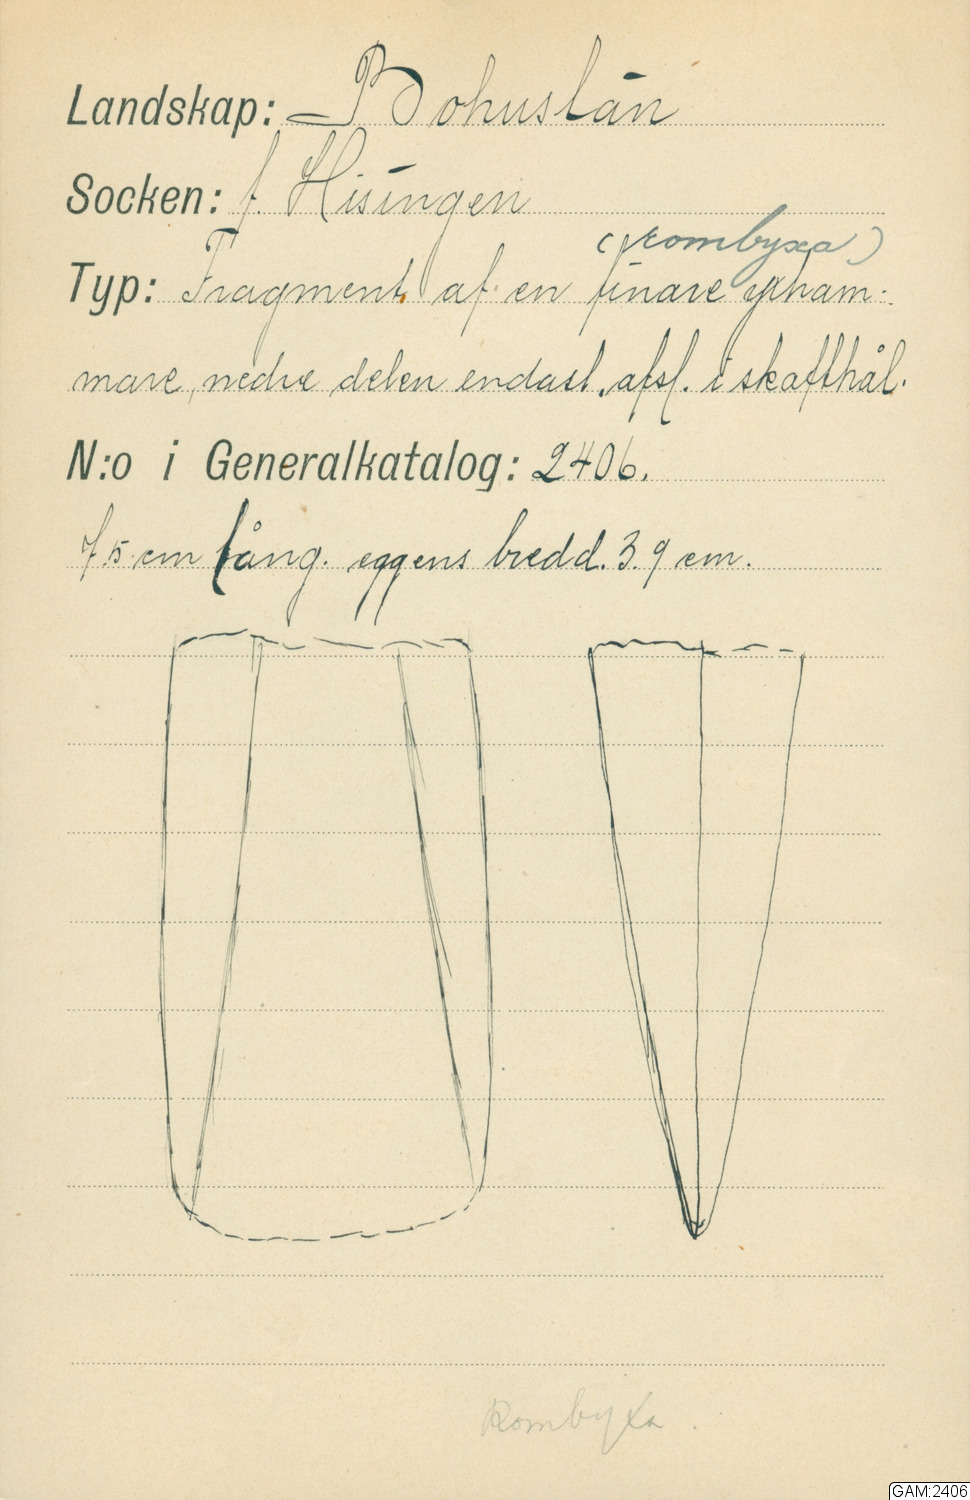 Landskap: Bohuslän
Socken: f. Hisingen
(rombyxa)
Typ: Fragment af en finare yxham-
mare, nedre delen endast, afsl. i skafthål.
N:o i Generalkatalog: 2406.
7.5 cm lång. eggens bredd. 3.9 cm.
Rombyxa.
GAM:2406